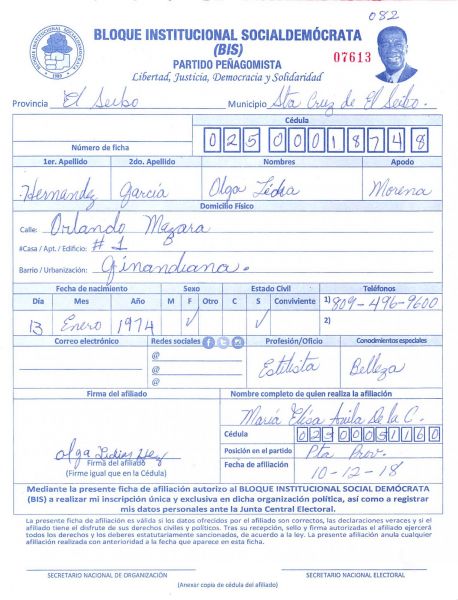 082
BLOQUE INSTITUCIONAL SOCIALDEMÓCRATA
(BIS)
PARTIDO PEÑAGOMISTA
Libertad, Justicia, Democracia y Solidaridad
07613
BLOQUE INSTITUCIONAL SOCIALDEMOCRATA
Provincia El Seibo Municipio Sta Cruz de El Seibo.
Cédula
Número de ficha 025 0001874 8
1er. Apellido 2do. Apellido Nombres Apodo
Hernandez García Olga Lidia Morena
Domicilio Físico
Calle: Orlando Mazara
#Casa / Apt. / Edificio: # 1 B
Barrio / Urbanización: Ginandiana.
Fecha de nacimiento Sexo Estado Civil Teléfonos
Día Mes Año M F Otro C S Conviviente 1) 809-496-9600
13 Enero 1974 ✓ ✓ 2)
Correo electrónico Redes sociales Profesión/Oficio Conodmientos especiales
@
@
@
Estilista Belleza
Firma del afiliado Nombre completo de quien realiza la afiliación
María Elisa Avila De la C.
Cédula
Posición en el partido Pta Prov.
Fecha de afiliación 10-12-18
Olga Lidia Hez
Firma del afiliado
(Firme igual que en la Cédula)
Mediante la presente ficha de afiliación autorizo al BLOQUE INSTITUCIONAL SOCIAL DEMÓCRATA
(BIS) a realizar mi inscripción única y exclusiva en dicha organización política, así como a registrar
mis datos personales ante la Junta Central Electoral.
La presente ficha de afiliación es válida si los datos ofrecidos por el afiliado son correctos, las declaraciones veraces y si el
afiliado tiene el disfrute de sus derechos civiles y políticos. Tras su recepción, sello y firma autorizadas el afiliado ejercerá
todos los derechos y los deberes estatutariamente sancionados, de acuerdo a la ley. La presente afiliación anula cualquier
afiliación realizada con anterioridad a la fecha que aparece en esta ficha.
SECRETARIO NACIONAL DE ORGANIZACIÓN SECRETARIO NACIONAL ELECTORAL
(Anexar copia de cédula del afiliado)